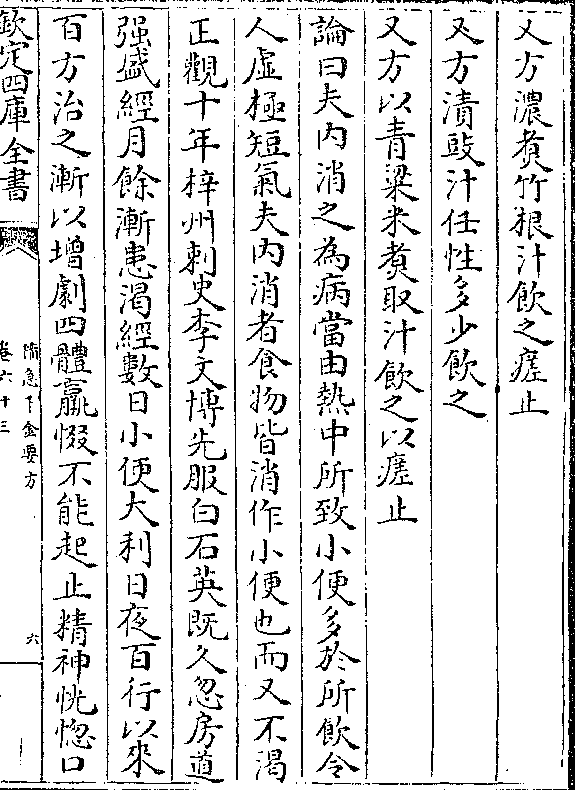 又方濃煑竹根汁飲之瘥止
又方漬豉汁任性多少飲之
又方以青粱米煑取汁飲之以瘥止
論曰夫内消之為病當由熱中所致小便多於所飲令
人虛極短氣夫内消者食物皆消作小便也而又不渴
正觀十年梓州刺史李文博先服白石英既久忽房道
强盛經月餘漸患渴經數日小便大利日夜百行以來
百方治之漸以增劇四體羸惙不能起止精神恍惚口
欽定四庫全書
備急千金要方
卷六十三
六